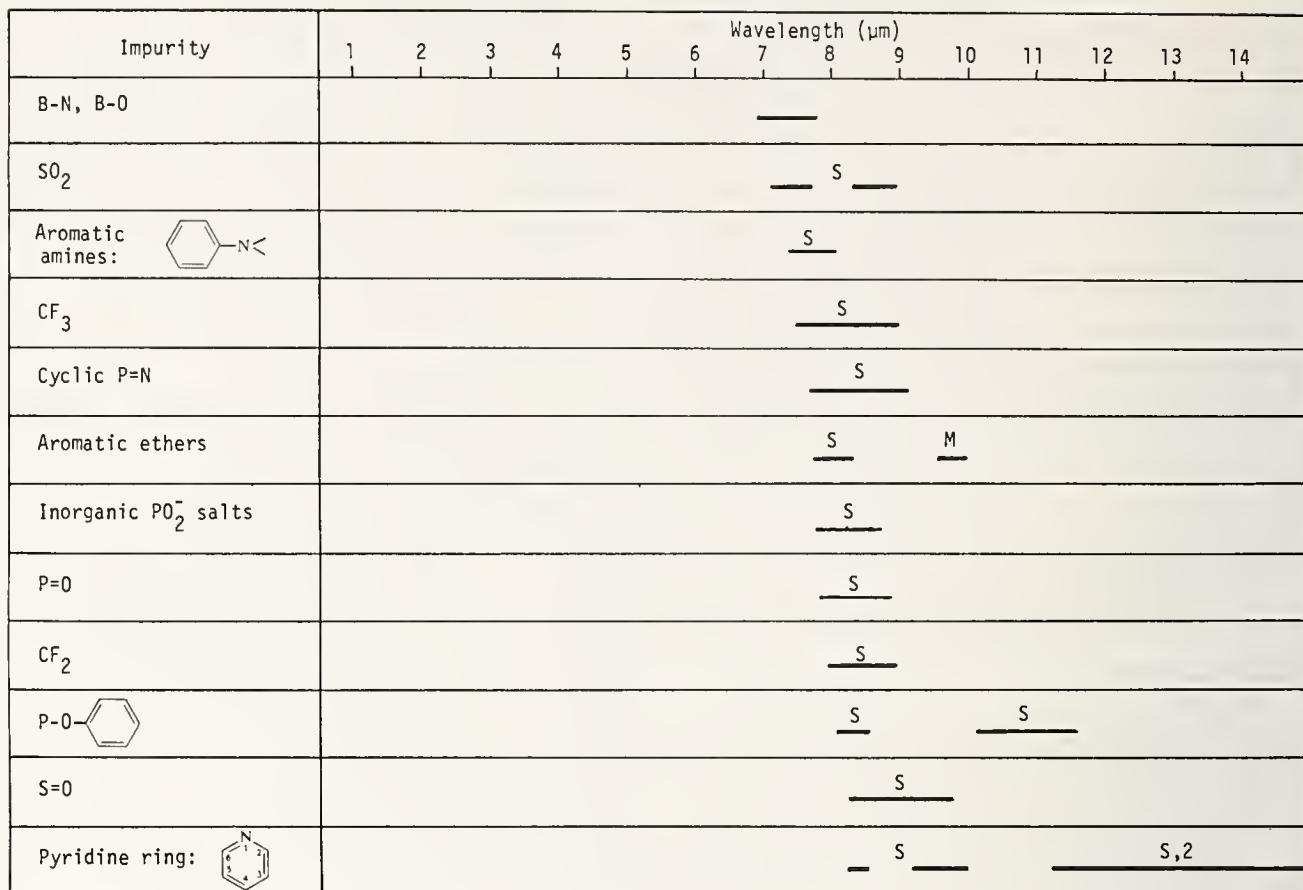 Impurity
Wavelength (μm)
1 2 3 4 5 6 7 8 9 10 11 12 13 14
B-N, B-O
SO2
S
Aromatic
amines:
N
S
CF3
S
Cyclic P=N
S
Aromatic ethers
S M
Inorganic PO2- salts
S
P=O
S
CF2
S
P-O-
S S
S=O
S
Pyridine ring:
N
1
6 2
5 3
4
S S,2